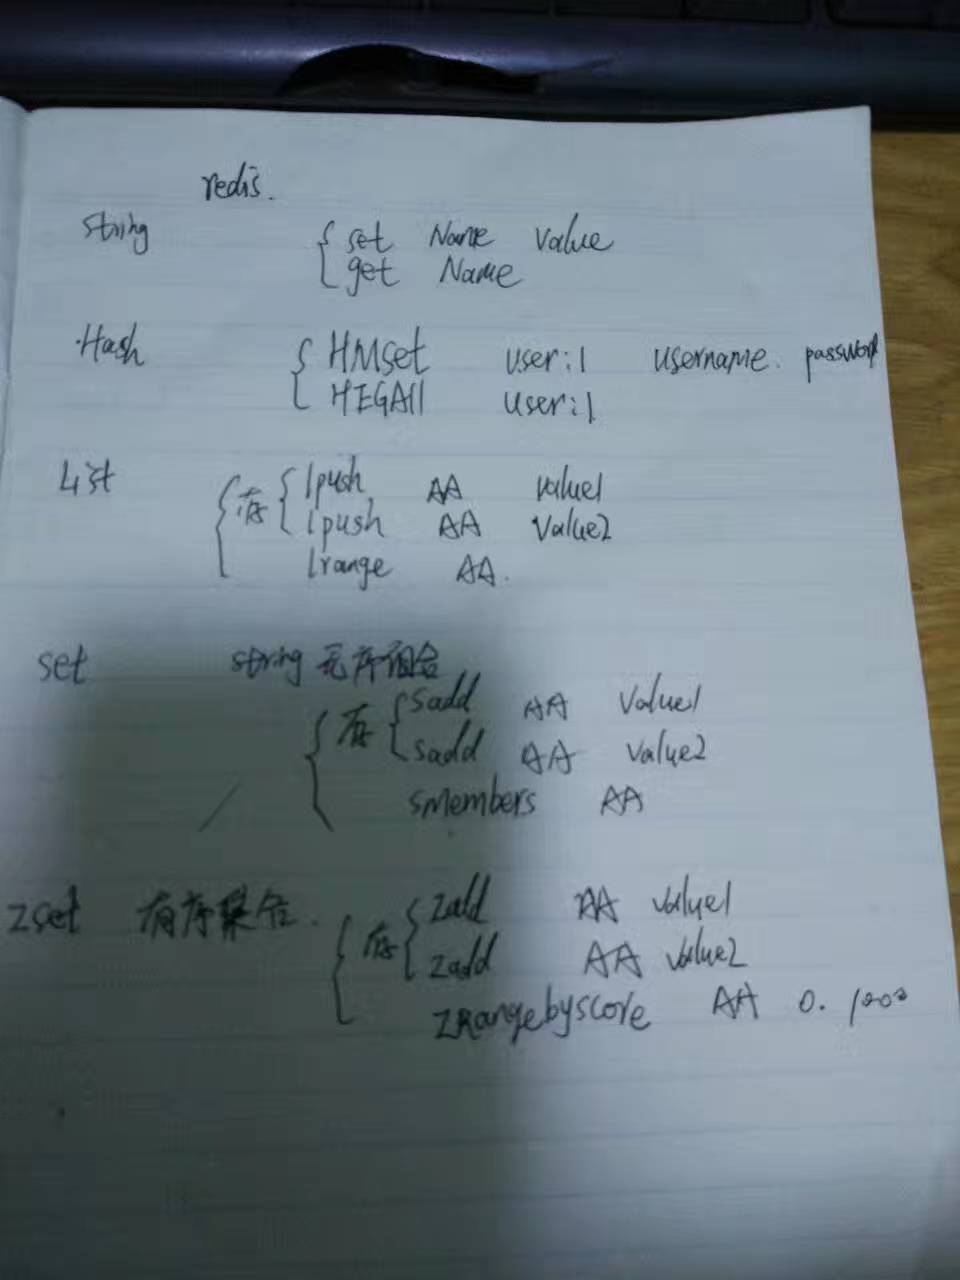 redis.
string { set Name value
get Name
Hash { HMset user:1 username. password
HEGAll user:1
List { 存 { lpush AA value1
lpush AA value2
lrange AA.
set string 无序组合
{ 存 { sadd AA value1
sadd AA value2
smembers AA
zset 有序集合.
{ 存 { zadd AA value1
zadd AA value2
ZRangebyscore AA 0. 1000